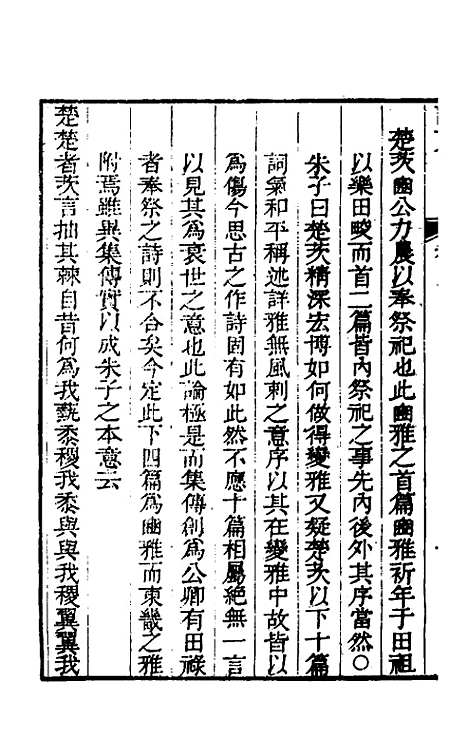 楚茨豳公力農以奉祭祀也此豳雅之首篇豳雅祈年于田祖
以樂田畯而首二篇皆內祭祀之事先內後外其序當然○
朱子曰楚茨精深宏博如何做得變雅又疑楚茨以下十篇
詞氣和平稱述詳雅無風刺之意序以其在變雅中故皆以
爲傷今思古之作詩固有如此然不應十篇相屬絕無一言
以見其爲衰世之意也此論極是而集傳創爲公卿有田祿
者奉祭之詩則不合矣今定此下四篇爲豳雅而東畿之雅
附焉雖異集傳實以成朱子之本意云
楚楚者茨言抽其棘自昔何爲我蓺黍稷我黍與與我稷翼翼我